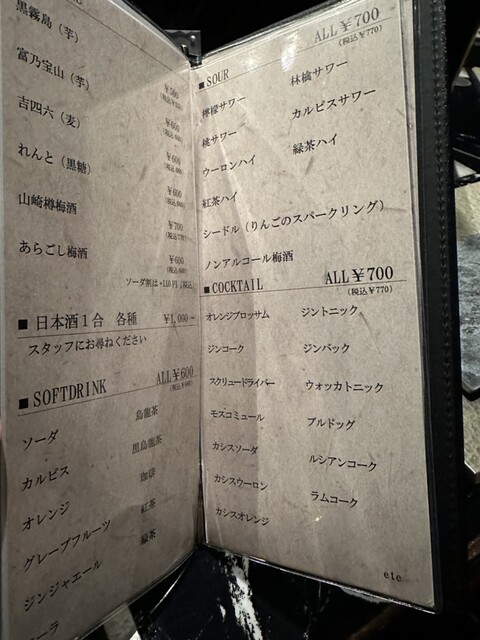 黒霧島（芋）
￥500
富乃宝山（芋）
￥600
吉四六（麦）
￥600
れんと（黒糖）
￥600
山崎樽梅酒
￥700
あらごし梅酒
￥600
ソーダ割は+110円（税込）
■ 日本酒１合　各種　￥1,000～
スタッフにお尋ねください
■ SOFTDRINK　ALL￥600
ソーダ
カルピス
オレンジ
グレープフルーツ
ジンジャエール
ーラ
烏龍茶
黒烏龍茶
珈琲
紅茶
緑茶
■ SOUR　ALL￥700
（税込￥770）
檸檬サワー　林檎サワー
桃サワー　カルピスサワー
ウーロンハイ　緑茶ハイ
紅茶ハイ
シードル（りんごのスパークリング）
ノンアルコール梅酒
■ COCKTAIL　ALL￥700
（税込￥770）
オレンジブロッサム　ジントニック
ジンコーク　ジンバック
スクリュードライバー　ウォッカトニック
モスコミュール　ブルドッグ
カシスソーダ　ルシアンコーク
カシスウーロン　ラムコーク
カシスオレンジ
etc